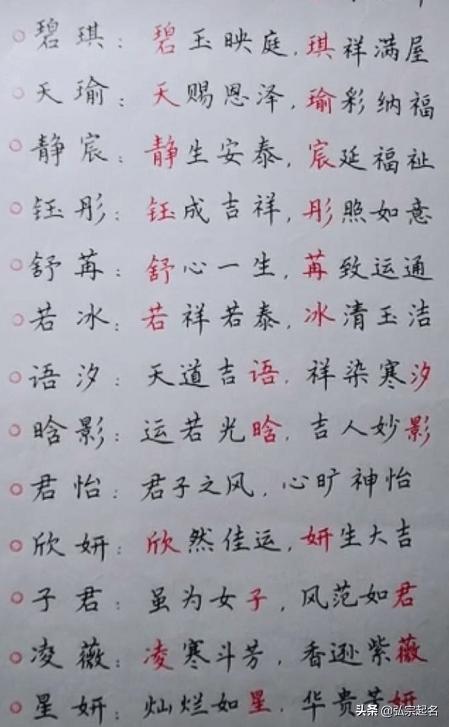 碧琪：碧玉映庭，琪祥满屋
天瑜：天赐恩泽，瑜彩纳福
静宸：静生安泰，宸延福祉
钰彤：钰成吉祥，彤照如意
舒苒：舒心一生，苒致运通
若冰：若祥若泰，冰清玉洁
语汐：天道吉语，祥染寒汐
晗影：运若光晗，吉人妙影
君怡：君子之风，心旷神怡
欣妍：欣然佳运，妍生大吉
子君：虽为女子，风范如君
凌薇：凌寒斗芳，香逊紫薇
星妍：灿烂如星，华贵芳妍
头条 @弘宗起名